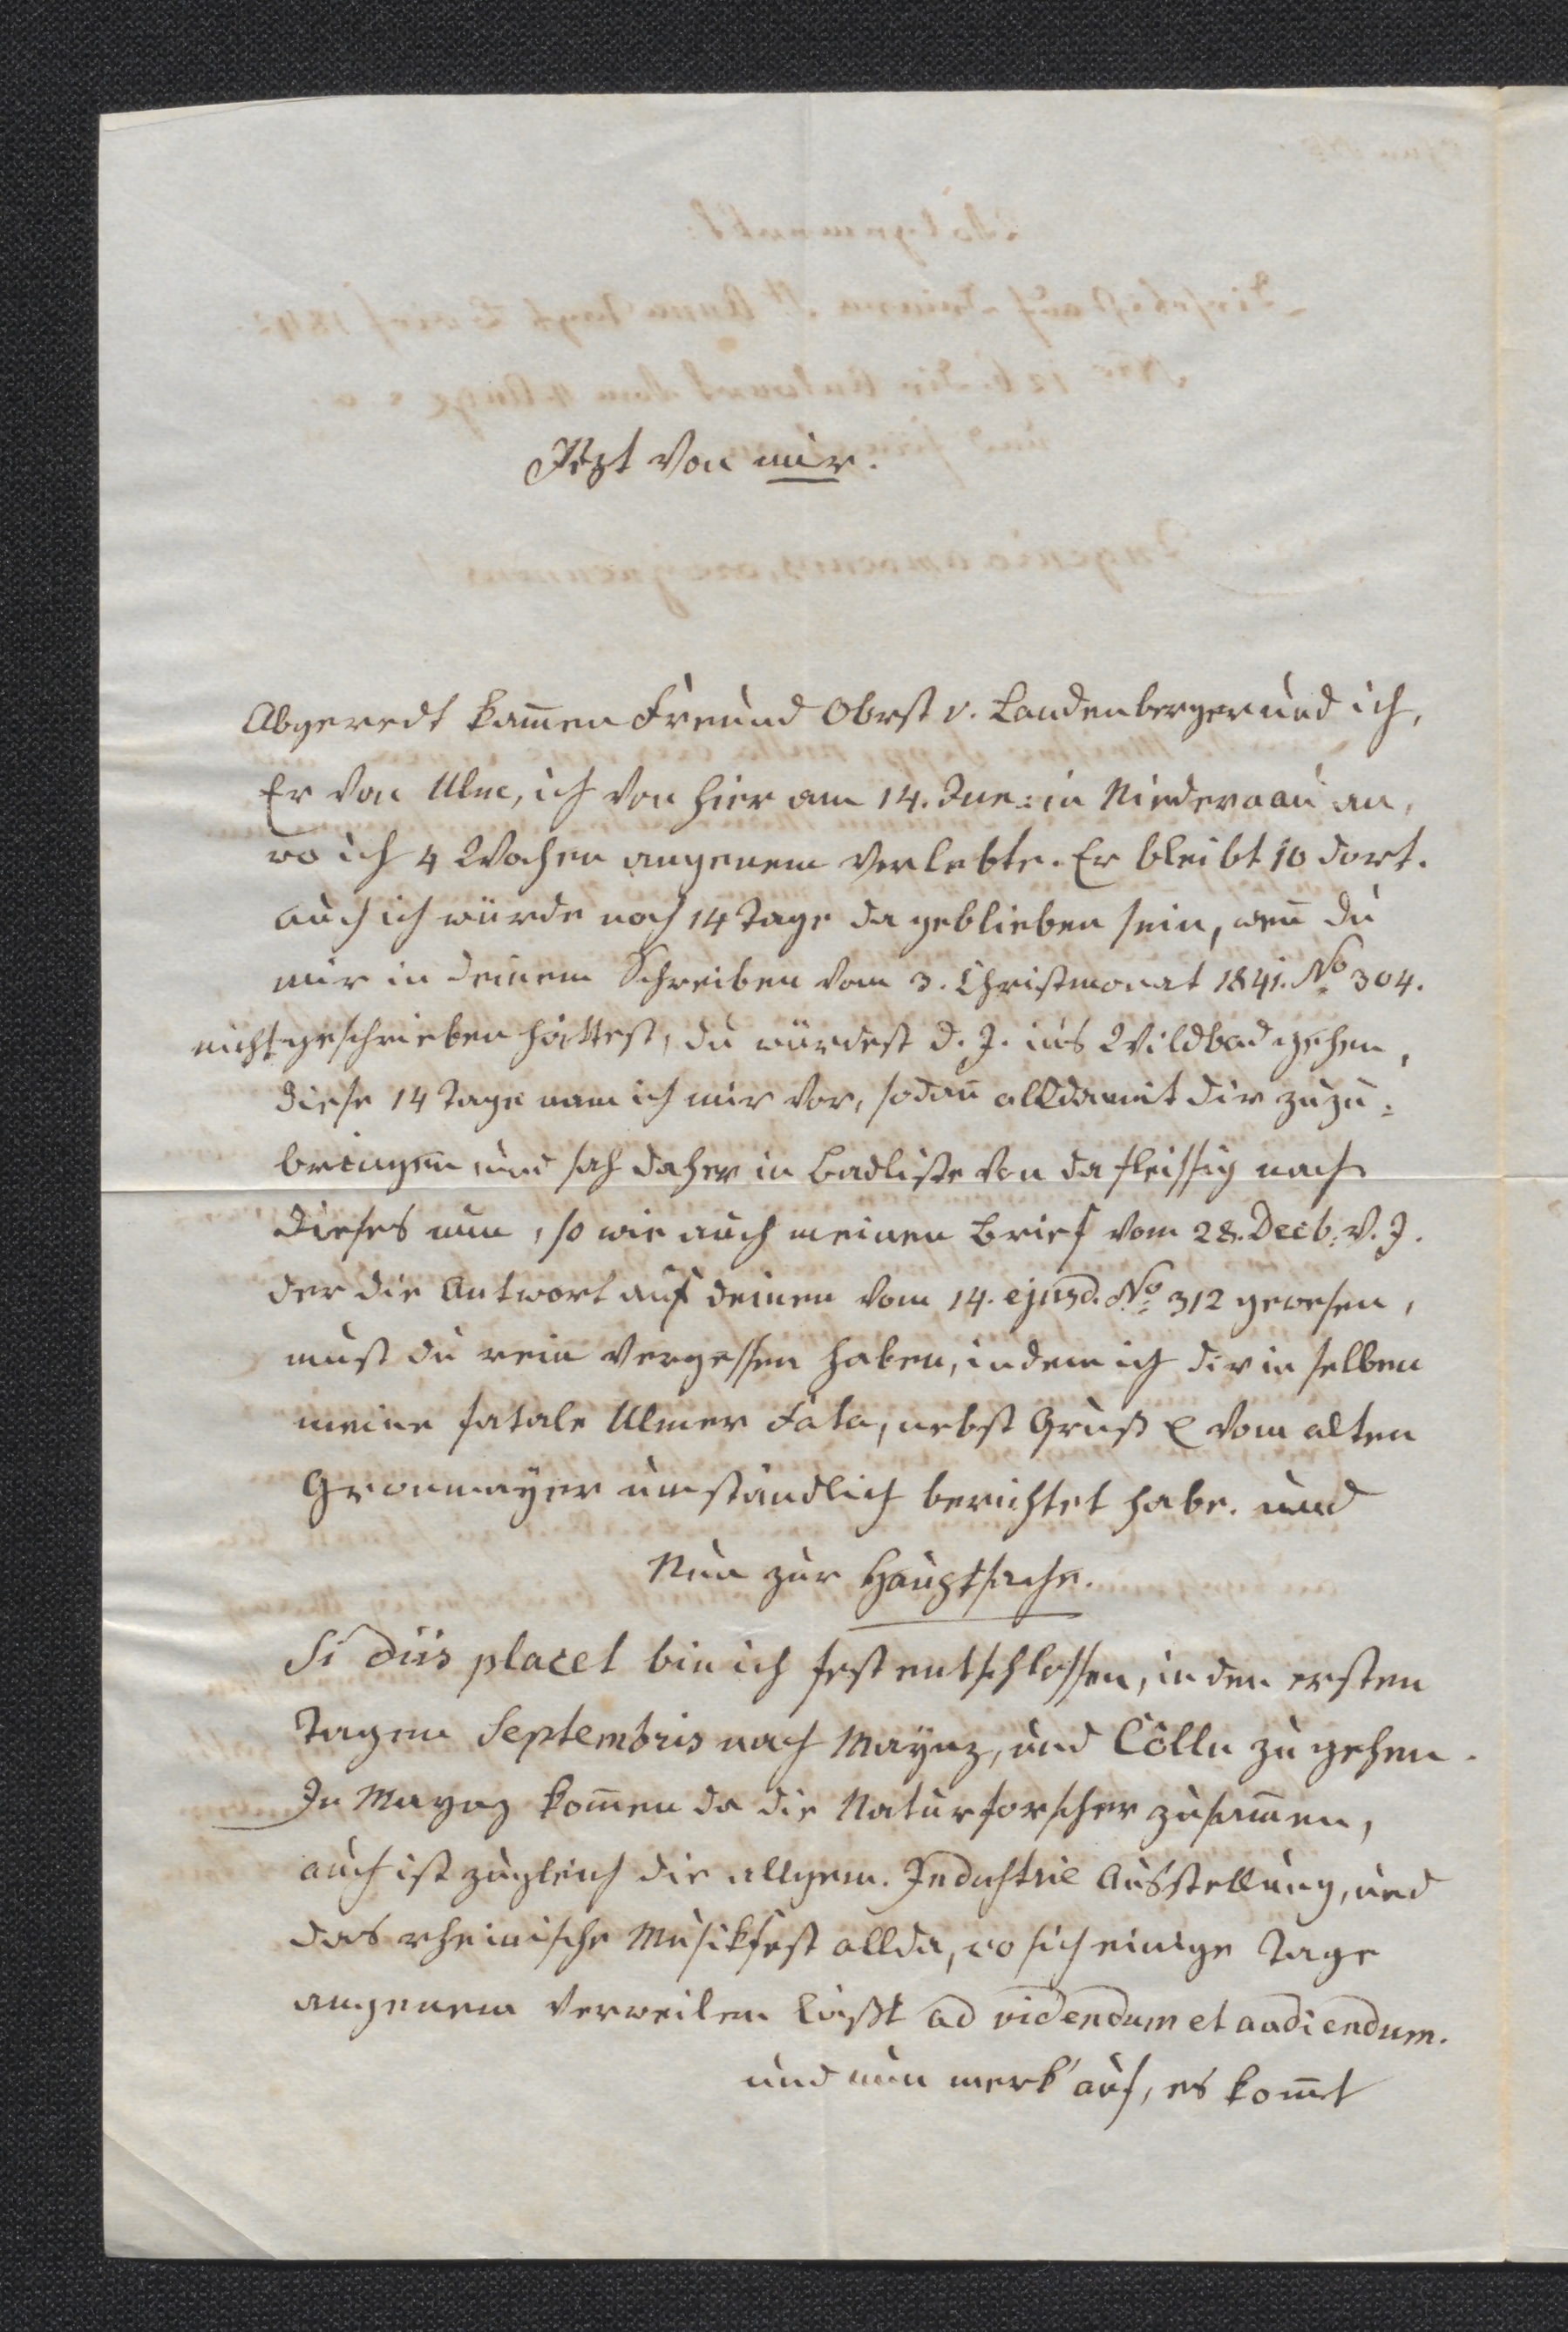 Jezt von mir.
Abgeredt kam̅en Freund Obrst v. Landenberger und ich,
Er von Ulm, ich von hier am 14. Jun: in Niedernau an,
wo ich 4 Wochen angenem verlebte. Er bleibt 10 dort.
auch ich würde noch 14 Tage da geblieben sein, wen̅ du
mir in deinem Schreiben vom 3. Christmonat 1841. No 304.
nicht geschrieben hättest, du würdest d. J. ins Wildbad gehen,
diese 14 Tage nam ich mir vor, sodan̅ allda mit dir zuzu=
bringen, und sah daher in Badliste von da fleissig nach.
dieses nun, so wie auch meinen Brief vom 28. Decb. v. J.
der die Antwort auf deinen vom 14. ejusd. No 312 gewesen,
must du rein vergessen haben, indem ich dir in selben
meine fatale Ulmer Fata, nebst Gruß vom alten
Gronmayer umständlich berichtet habe. und
Nun zur Hauptsache.
Si diis placet bin ich fest entschlossen, in den ersten
Tagen Septembris nach Maynz, und Cölln zu gehen.
In Maynz kom̅en da die Naturforscher zusam̅en,
auch ist zugleich die allgem. Industrie Ausstellung, und
das rheinische Musikfest allda, wo sich einige Tage
angenem verweilen läßt ad videndum et audiendum.
und nun merk' auf, es kom̅t